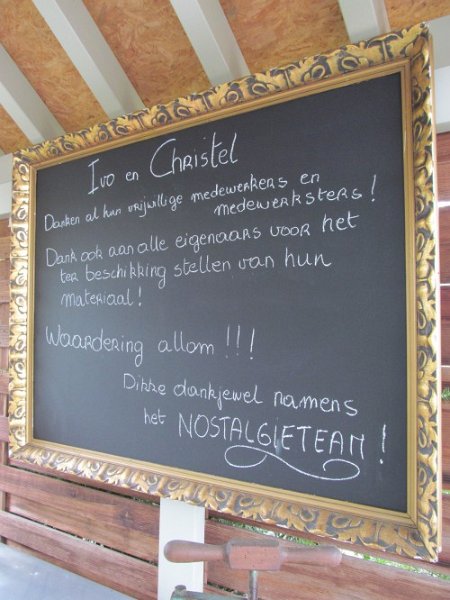 Ivo en Christel
Danken al hun vrijwillige medewerkers en
medewerksters!
Dank ook aan alle eigenaars voor het
ter beschikking stellen van hun
materiaal!
Waardering allom!!!
Dikke dankjewel namens
het NOSTALGIETEAM!